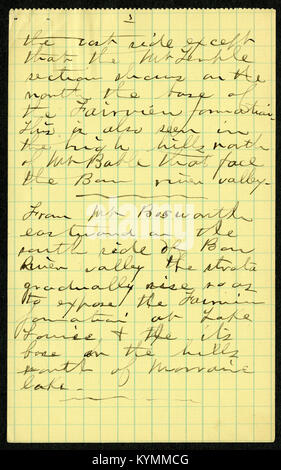 the east side except
that the Mt Temple
section shows on the
north the base of
the Fairview formation.
This is also seen in
the high hills north
of Mt Bable that face
the Bow river valley.
From Mt Bosworth
eastward on the
south side of Bow
River valley the strata
gradually rise so as
to expose the Fairview
formation at Lake
Louise & the its
base on the hills
north of Morraine
lake.
alamy
KYMMCG
www.alamy.com